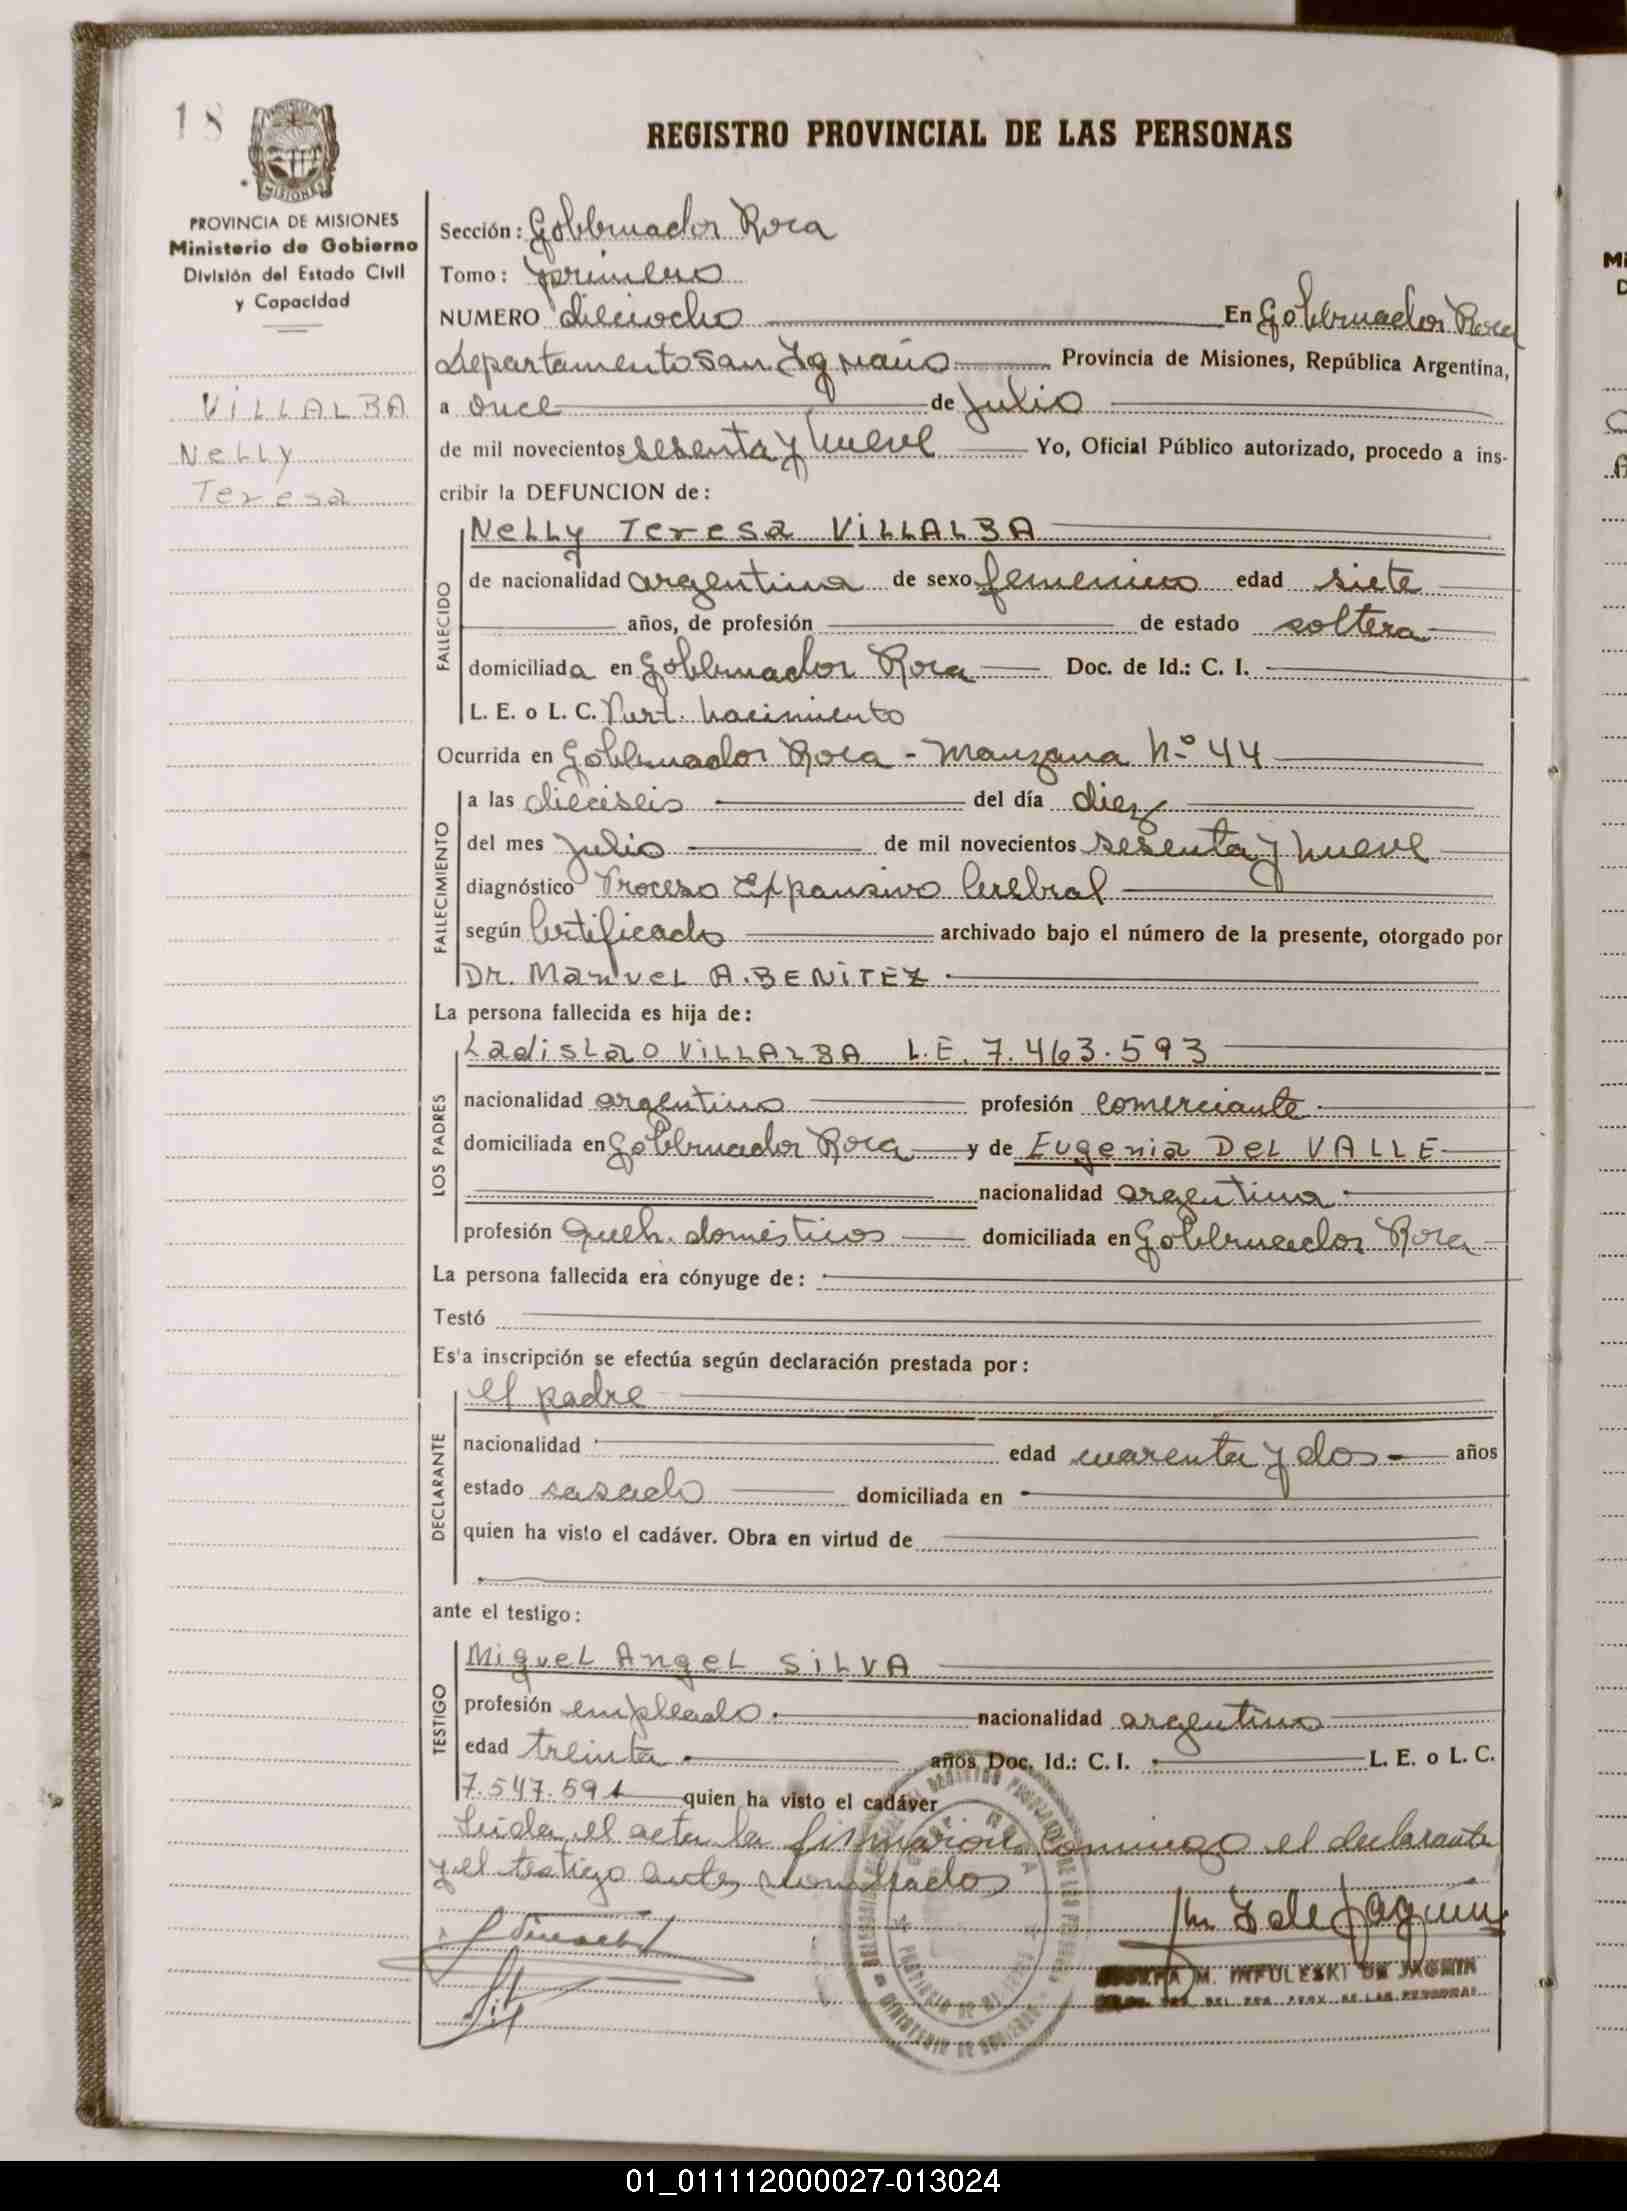 18
REGISTRO PROVINCIAL DE LAS PERSONAS
MISIONES
PROVINCIA DE MISIONES
Ministerio de Gobierno
División del Estado Civil
y Capacidad
VILLALBA
Nelly
Teresa
Sección: Gobernador Roca
Tomo: primero
NUMERO dieciocho En Gobernador Roca
Departamento San Ignacio Provincia de Misiones, República Argentina,
a once de Julio
de mil novecientos sesenta y nueve Yo, Oficial Público autorizado, procedo a ins-
cribir la DEFUNCION de:
Nelly Teresa VILLALBA
FALLECIDO
de nacionalidad argentina de sexo femenino edad siete
años, de profesión de estado soltera
domiciliada en Gobernador Roca Doc. de Id.: C. I.
L. E. o L. C. Part. nacimiento
Ocurrida en Gobernador Roca - Manzana Nº 44
FALLECIMIENTO
a las dieciseis del día diez
del mes Julio de mil novecientos sesenta y nueve
diagnóstico Proceso Expansivo Cerebral
según Certificado archivado bajo el número de la presente, otorgado por
Dr. Manuel A. BENITEZ
La persona fallecida es hija de:
LOS PADRES
Ladislao VILLALBA L.E. 7.463.593
nacionalidad argentino profesión comerciante
domiciliada en Gobernador Roca y de Eugenia Del VALLE
nacionalidad argentina
profesión queh. domésticos domiciliada en Gobernador Roca
La persona fallecida era cónyuge de:
Testó
Es'a inscripción se efectúa según declaración prestada por:
DECLARANTE
el padre
nacionalidad edad cuarenta y dos años
estado casado domiciliada en
quien ha visto el cadáver. Obra en virtud de
ante el testigo:
TESTIGO
Miguel Angel SILVA
profesión empleado nacionalidad argentino
edad treinta años Doc. Id.: C. I. L. E. o L. C.
7.547.591 quien ha visto el cadáver
Leida el acta la firmaron conmigo el declarante
y el testigo antes nombrados
M. INFULESKI DE JAGMIN
01_011112000027-013024